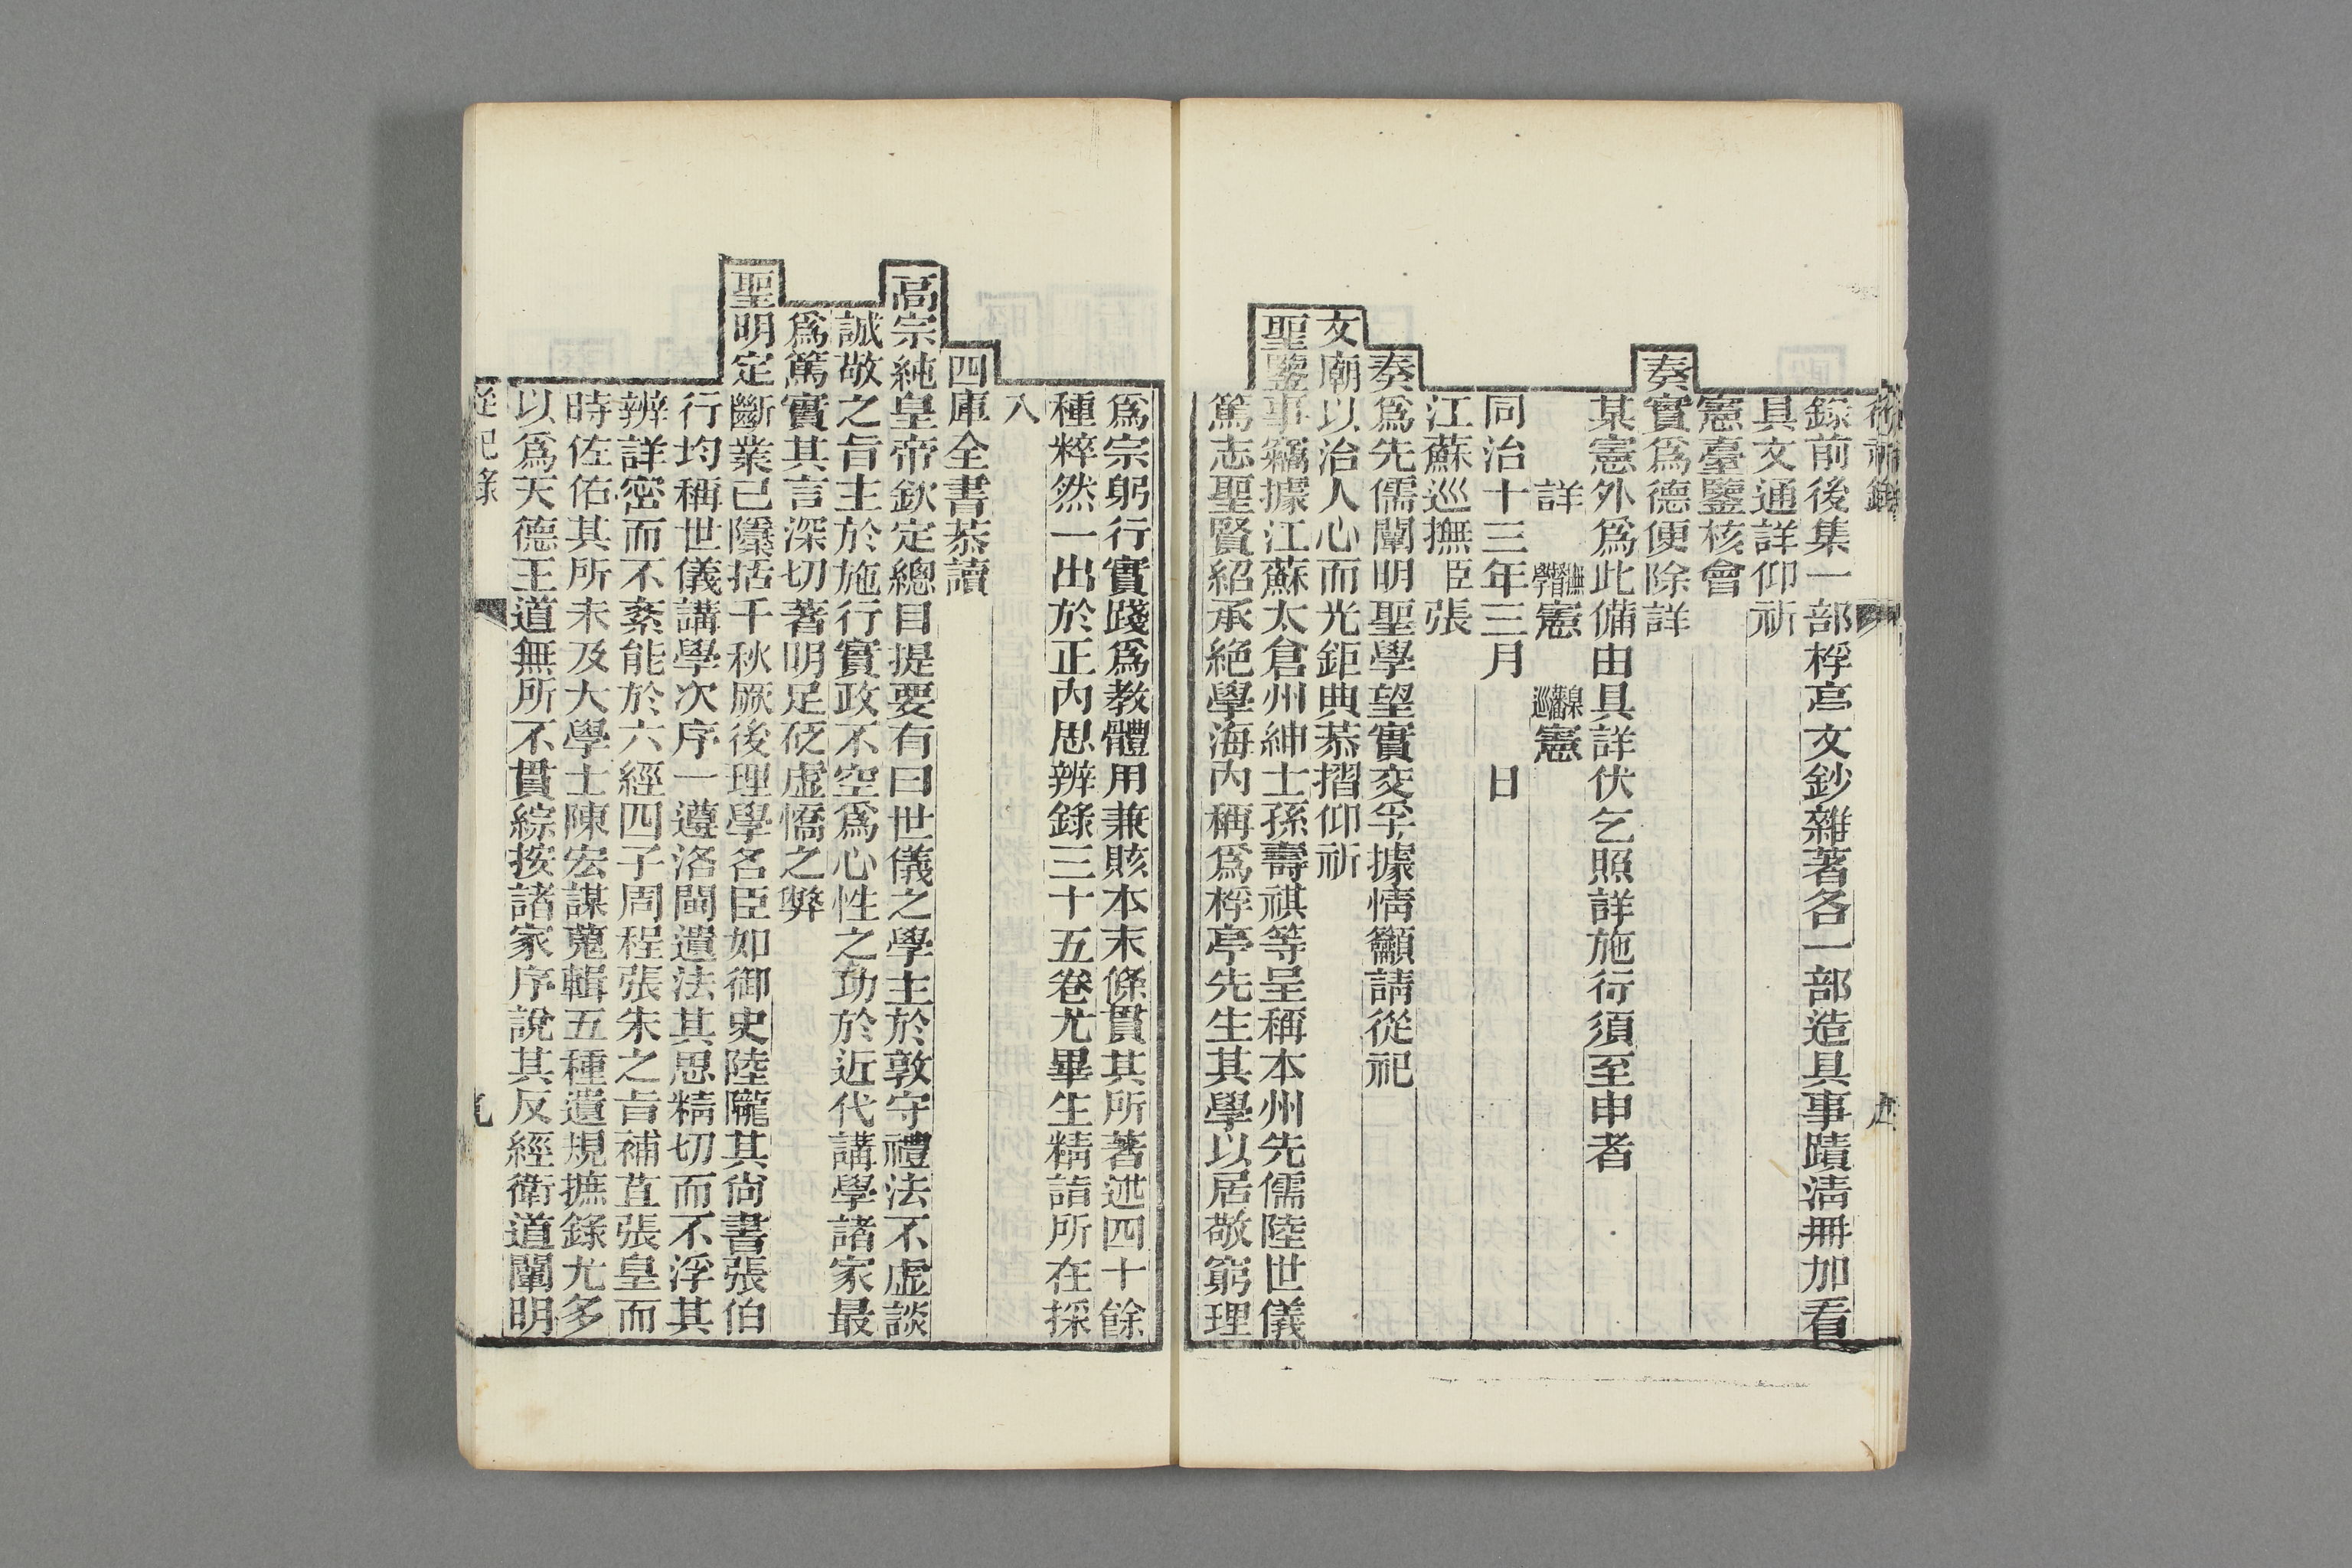 錄前後集一部桴亭文鈔雜著各一部造具事蹟清冊加看
具文通詳仰祈
憲臺鑒核會
奏實爲德便除詳
某憲外爲此備由具詳伏乞照詳施行須至申者
詳 撫督學憲 臬藩巡憲
同治十三年三月 日
江蘇巡撫臣張
奏爲先儒闡明聖學望實交孚據情籲請從祀
文廟以治人心而光鉅典恭摺仰祈
聖鑒事竊據江蘇太倉州紳士孫壽祺等呈稱本州先儒陸世儀
篤志聖賢紹承絶學海內稱爲桴亭先生其學以居敬窮理
爲宗躬行實踐爲教體用兼賅本末條貫其所著述四十餘
種粹然一出於正內思辨錄三十五卷尤畢生精詣所在採
入
四庫全書恭讀
高宗純皇帝欽定總目提要有曰世儀之學主於敦守禮法不虛談
誠敬之旨主於施行實政不空爲心性之功於近代講學諸家最
爲篤實其言深切著明足砭虛憍之弊
聖明定斷業已隱括千秋厥後理學名臣如御史陸隴其尚書張伯
行均稱世儀講學次序一遵洛閩遺法其思精切而不浮其
辨詳密而不紊能於六經四子周程張朱之旨補苴張皇而
時佐佑其所未及大學士陳宏謀蒐輯五種遺規摭錄尤多
以爲天德王道無所不貫綜按諸家序說其反經衛道闡明
從祀錄 九